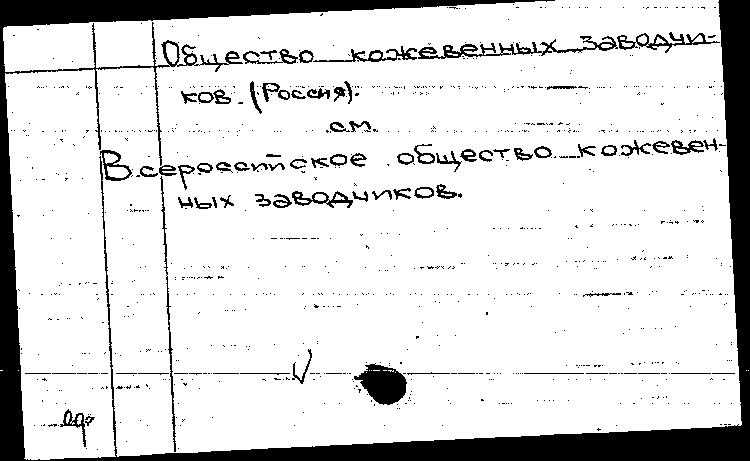 Общество кожевенных заводчи-
ков. (Россия).
см.
Всероссийское общество кожевен-
ных заводчиков.